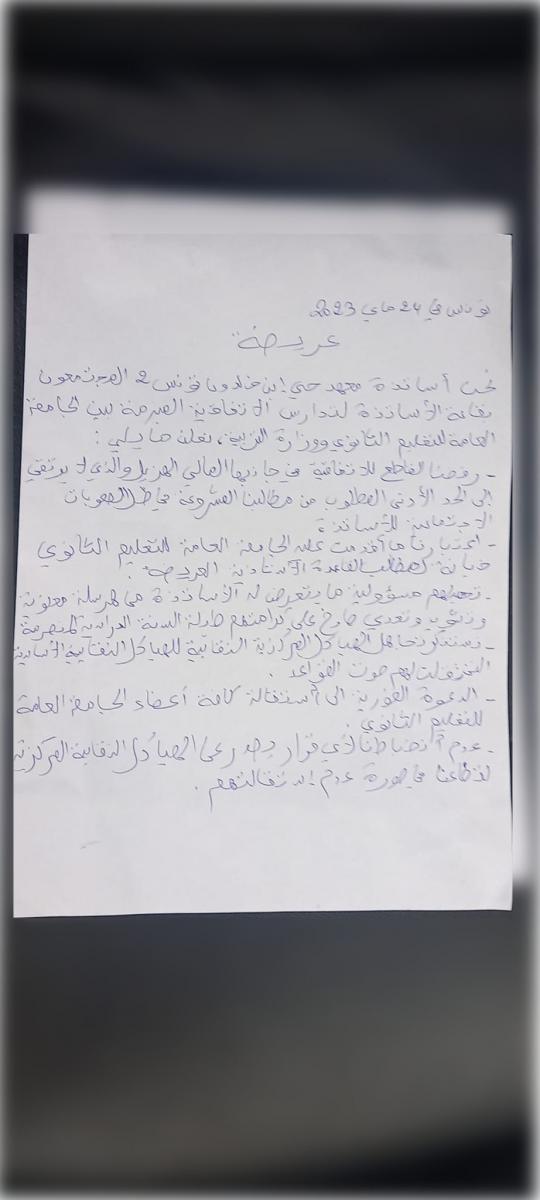 تونس في 24 ماي 2023
عريضة
نحن أساتذة معهد حي ابن خلدون تونس 2 المجتمعون
بقاعة الأساتذة لتدارس الاتفاقية المبرمة بين الجامعة
العامة للتعليم الثانوي ووزارة التربية، نعلن ما يلي :
- رفضنا القاطع للاتفاقية في جانبها المالي الهزيل والذي لا يرتقي
إلى الحد الأدنى المطلوب من مطالبنا المشروعة في ظل الصعوبات
الاجتماعية للأستاذة
- اعتبارنا ما أقدمت عليه الجامعة العامة للتعليم الثانوي
خيانة لمطالب القاعدة الأستاذية العريضة .
- تحميلهم مسؤولية ما يتعرض له الأساتذة من هرسلة معنوية
وتعدي صارخ على كرامتهم طيلة السنة الدراسية المنصرمة
- نستنكر تجاهل الهياكل المركزية النقابية للهياكل النقابية الأساسية
لهم صوت القواعد .
- الدعوة الفورية الى استقالة كافة أعضاء الجامعة العامة
للتعليم الثانوي .
- عدم انضباطنا لأي قرار يصدر عن الهياكل النقابية المركزية
لقطاعنا في صورة عدم استقالتهم .